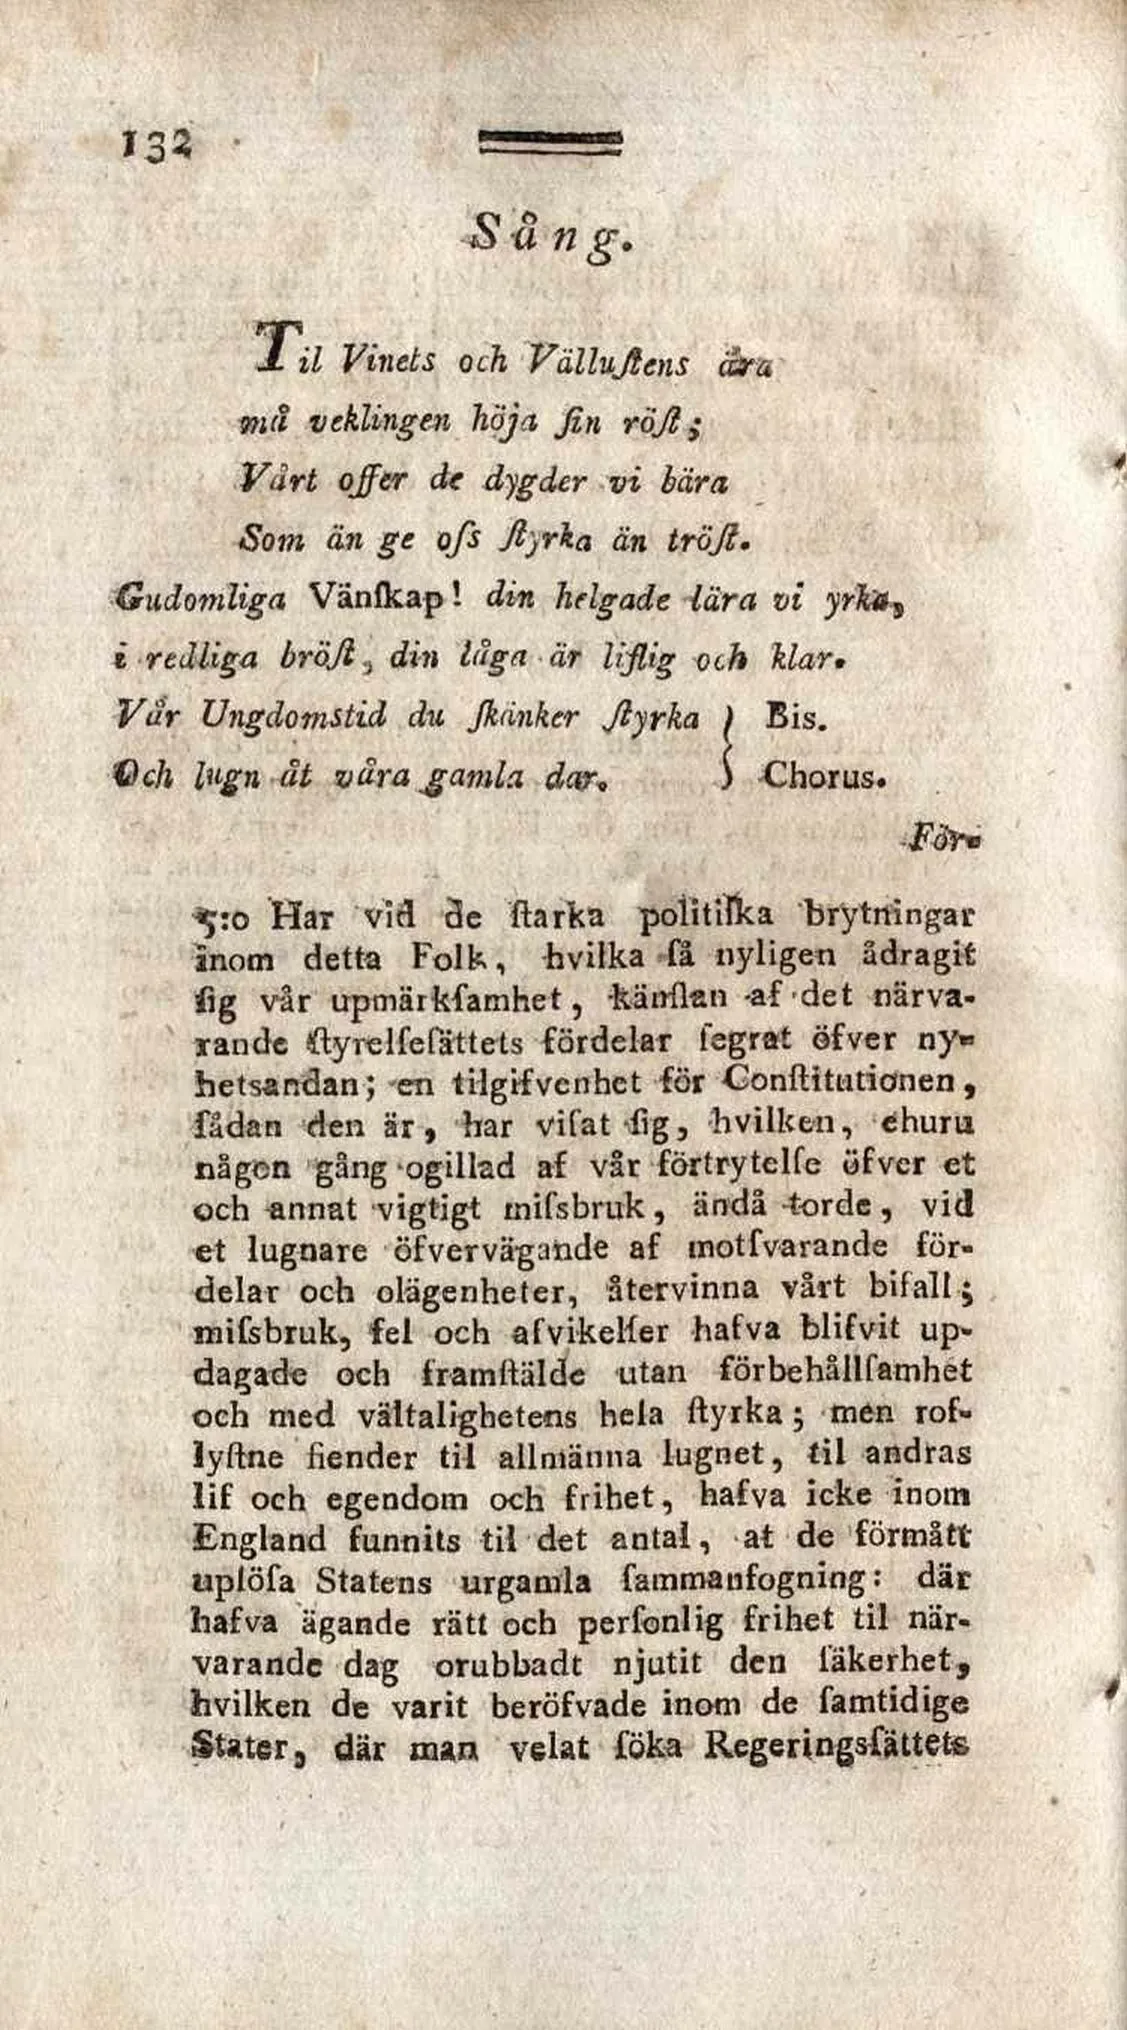 132
Sång.
Til Vinets och Välluſtens ära
må veklingen höja ſin röſt;
Vårt offer de dygder vi bära
Som än ge oſs ſtyrka än tröſt.
Gudomliga Vänſkap! din helgade lära vi yrka,
i redliga bröſt, din låga är liflig och klar.
Vår Ungdomstid du ſkänker ſtyrka } Bis.
Och lugn åt våra gamla dar. } Chorus.
För-
5:o Har vid de ſtarka politiſka brytningar
inom detta Folk, hvilka ſå nyligen ådragit
ſig vår upmärkſamhet, känſlan af det närva-
rande ſtyrelſeſättets fördelar ſegrat öfver ny-
hetsandan; en tilgifvenhet för Conſtitutionen,
ſådan den är, har viſat ſig, hvilken, ehuru
någon gång ogillad af vår förtrytelſe öfver et
och annat vigtigt miſsbruk, ändå torde, vid
et lugnare öfvervägande af motſvarande för-
delar och olägenheter, återvinna vårt bifall;
miſsbruk, fel och afvikelſer hafva blifvit up-
dagade och framſtälde utan förbehållſamhet
och med vältalighetens hela ſtyrka; men rof-
lyſtne fiender til allmänna lugnet, til andras
lif och egendom och frihet, hafva icke inom
England funnits til det antal, at de förmått
uplöſa Statens urgamla ſammanfogning: där
hafva ägande rätt och perſonlig frihet til när-
varande dag orubbadt njutit den ſäkerhet,
hvilken de varit beröfvade inom de ſamtidige
Stater, där man velat ſöka Regeringsſättets